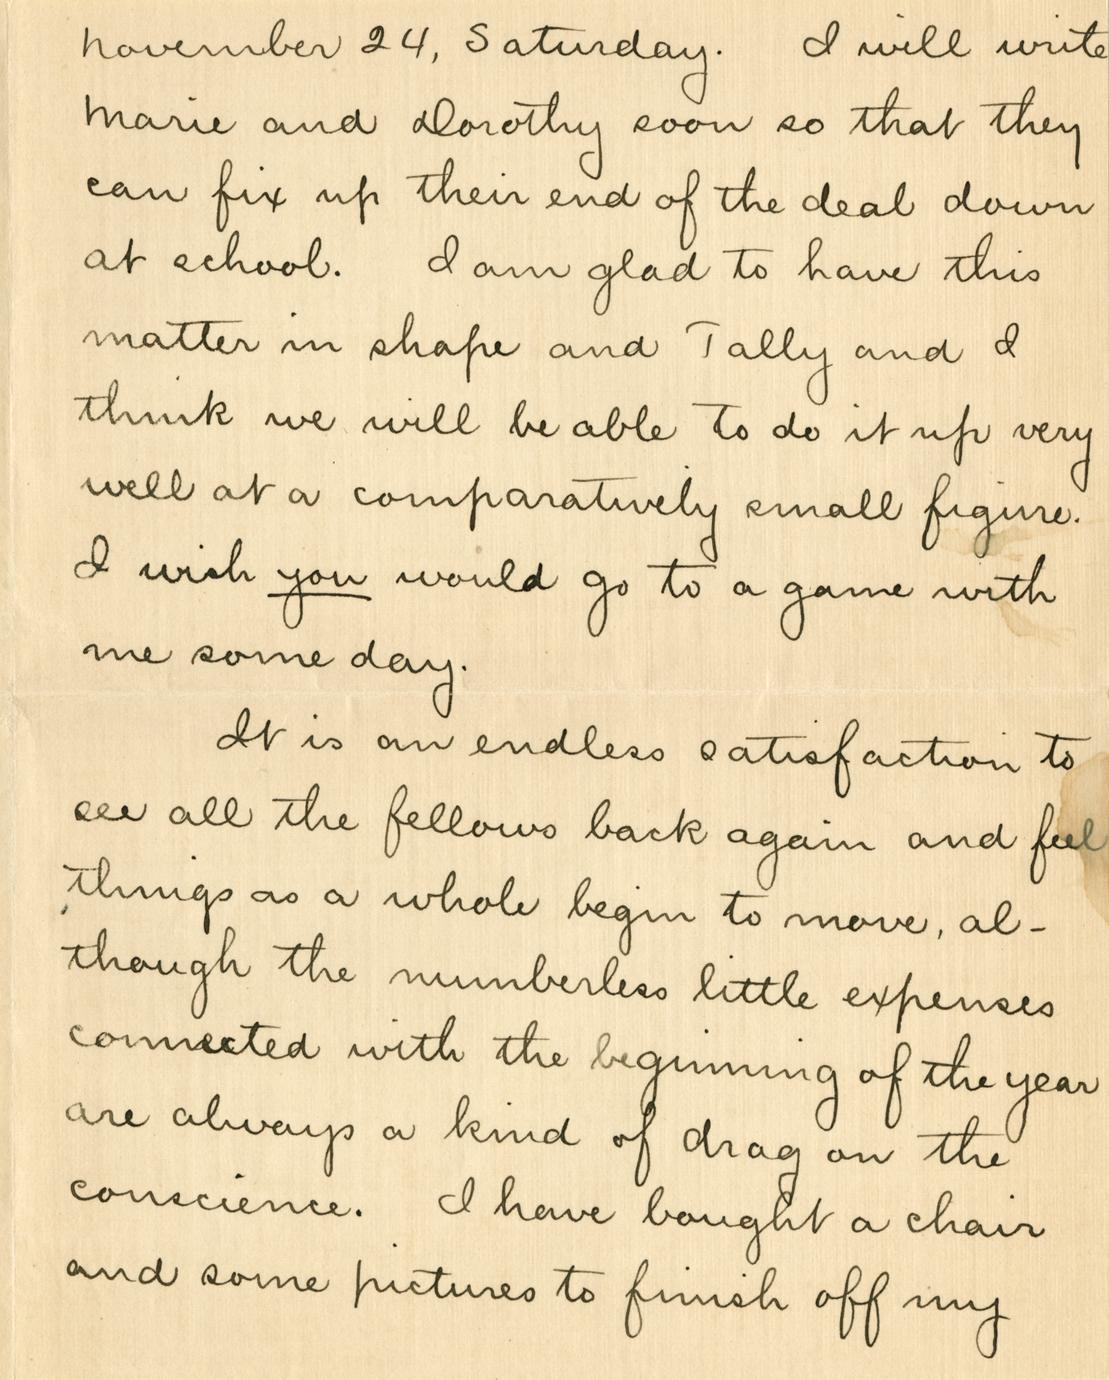 November 24, Saturday. I will write
Marie and Dorothy soon so that they
can fix up their end of the deal down
at school. I am glad to have this
matter in shape and Tally and I
think we will be able to do it up very
well at a comparatively small figure.
I wish you would go to a game with
me some day.
It is an endless satisfaction to
see all the fellows back again and feel
things as a whole begin to move, al-
though the numberless little expenses
connected with the beginning of the year
are always a kind of drag on the
conscience. I have bought a chair
and some pictures to finish off my